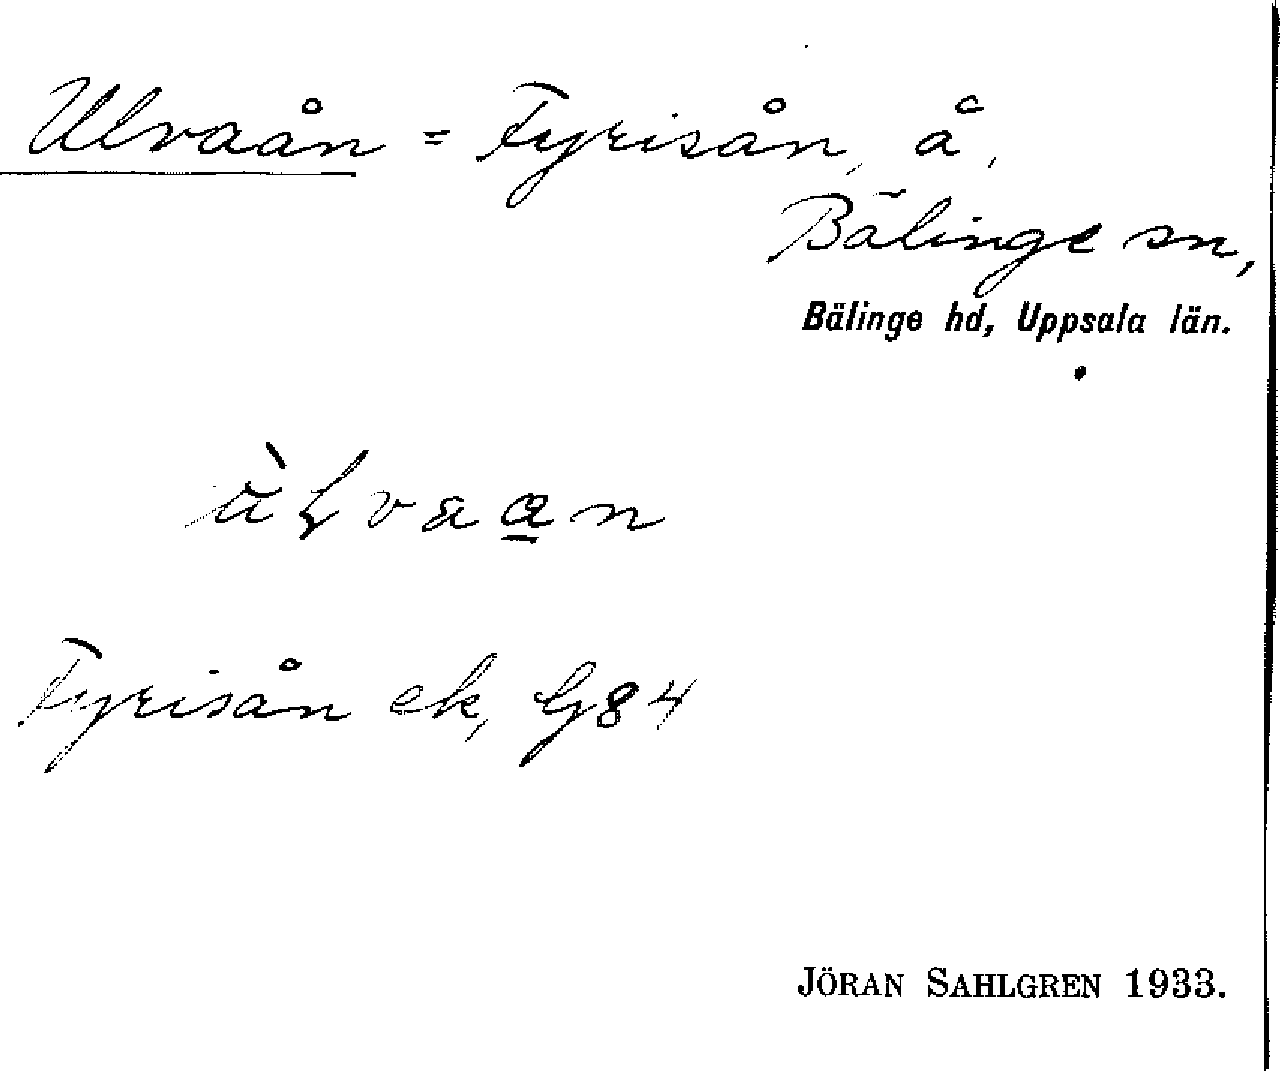 Ulvaån = Fyrisån, å,
Bälinge sn,
Bälinge hd, Uppsala län.
Fyrisån ek, G84
JÖRAN SAHLGREN 1933.